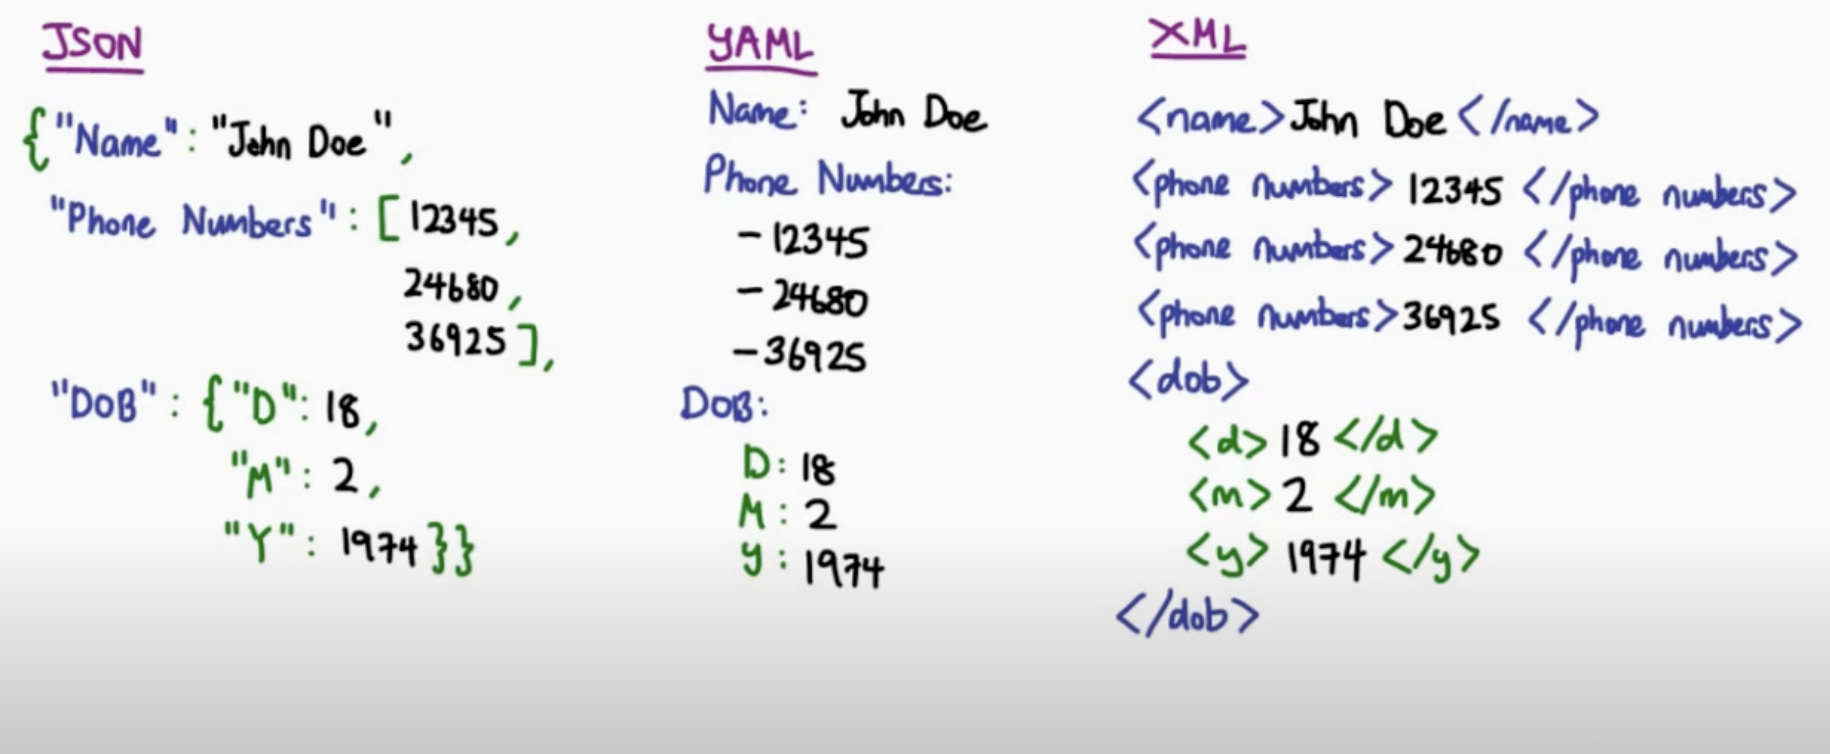 JSON
{"Name": "John Doe",
"Phone Numbers": [12345,
24680,
36925],
"DOB": {"D": 18,
"M": 2,
"Y": 1974}}
YAML
Name: John Doe
Phone Numbers:
- 12345
- 24680
- 36925
DOB:
D: 18
M: 2
y: 1974
XML
<name>John Doe</name>
<phone numbers> 12345 </phone numbers>
<phone numbers> 24680 </phone numbers>
<phone numbers> 36925 </phone numbers>
<dob>
<d> 18 </d>
<m> 2 </m>
<y> 1974 </y>
</dob>